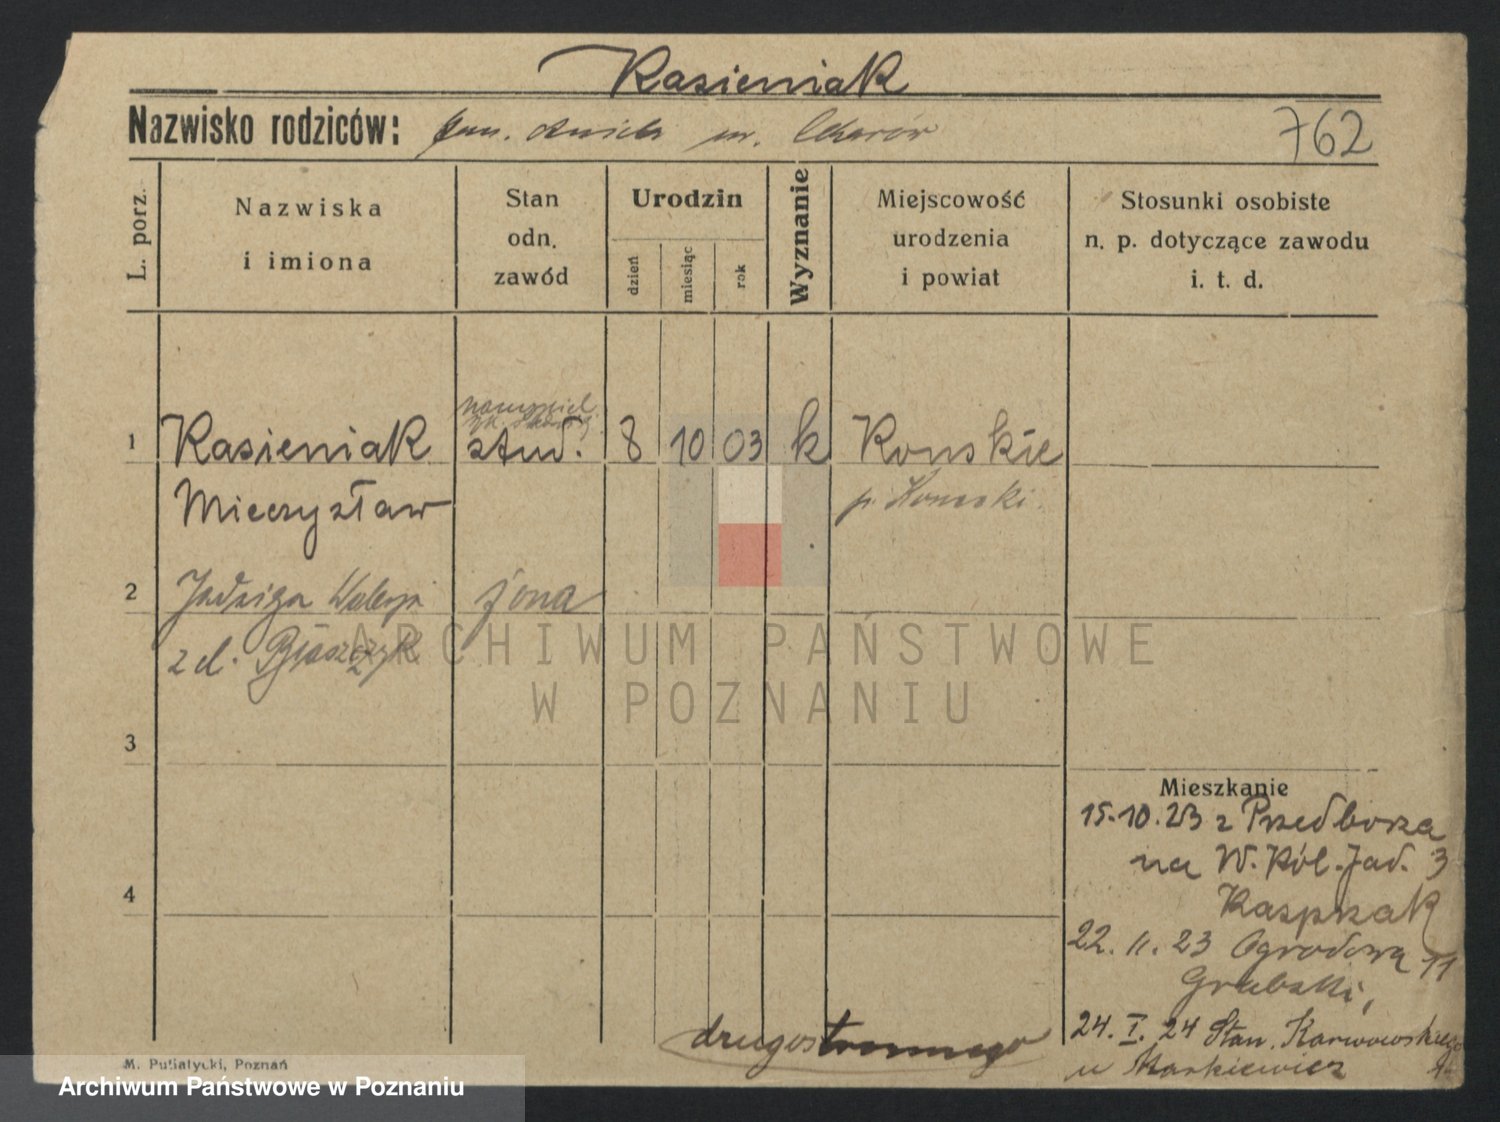 Kasieniak
Nazwisko rodziców: Jan. Aniela
762
L. porz.
Nazwiska
i imiona
Stan
odn.
zawód
Urodzin
dzień
miesiąc
rok
Wyznanie
Miejscowość
urodzenia
i powiat
Stosunki osobiste
n. p. dotyczące zawodu
i. t. d.
1 Kasieniak stud. 8 10 03 k Konskie
Mieczysław p. Konski.
2 Jadwiga Waleryja żona
z d. Błaszczyk
3
4
Mieszkanie
15.10.23 z Przedborza
na W. Król. Jad. 3
Kasprzak
22.11.23 Ogrodowa 11
Grabski,
24.I.24 Stan. Karwowskiego
u Markiewicz
drugostronnego
M. Putiatycki, Poznań
ARCHIWUM PAŃSTWOWE
W POZNANIU
Archiwum Państwowe w Poznaniu